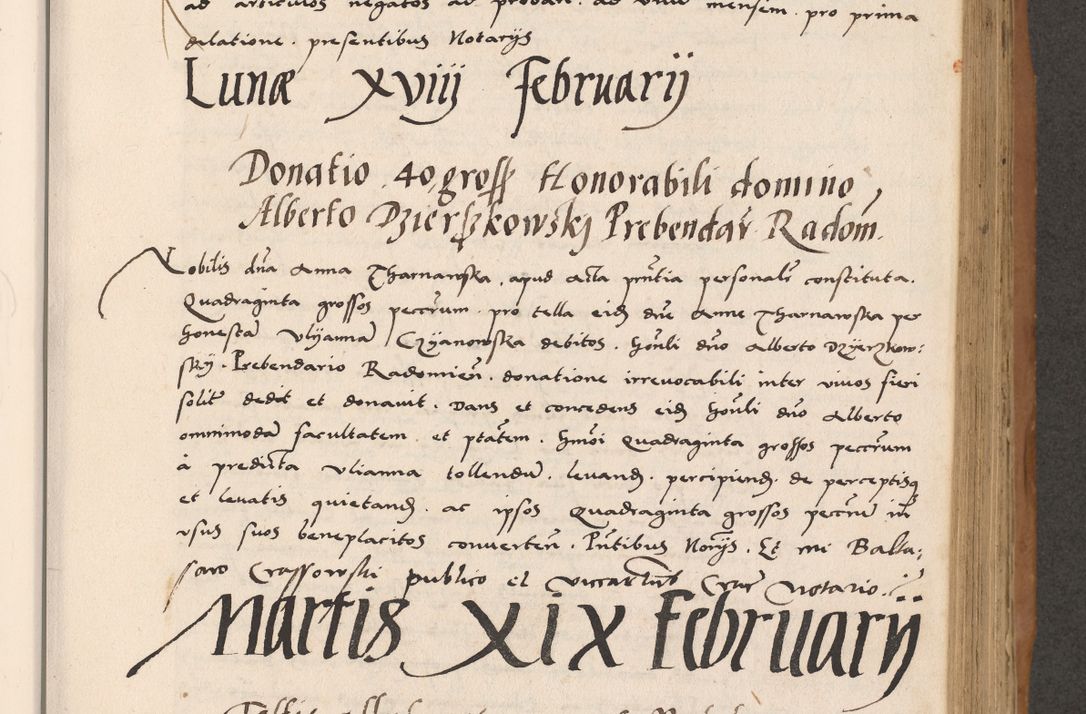 ad articulos negatos ad proband. ad unum mensem. pro prima
dilatione. presentibus Notarijs
Lunæ xviij Februarij
Donatio 40 gross Honorabili domino
Alberto Dzierszkowskj Prebendar Radom.
Nobilis dna Anna Tharnawska. apud Acta prntia personalr constituta.
Quadraginta grossos peccrum. pro tella eid dne Anne Tharnawska per
honesta Vlyanna Czyanowska debitos. honli dno Alberto Dzyerzkow:
skÿ. Prebendario Radomien. donatione irrevocabili inter vivos fieri
solit dedit et donavit. Dans et concedens eid honli dno Alberto
omnimoda facultatem. et ptatem. hmoi Quadraginta grossos peccrum
à predicta Vlianna tollendu. levand. percipiend. de perceptisq
et levatis quietand. ac ipsos Quadraginta grossos peccru in
vsus suos beneplacitos converten. Pntibus Norijs. Et mi Balta:
saro Crassowski publico et Crac Notario.
Martis XIX Februarij